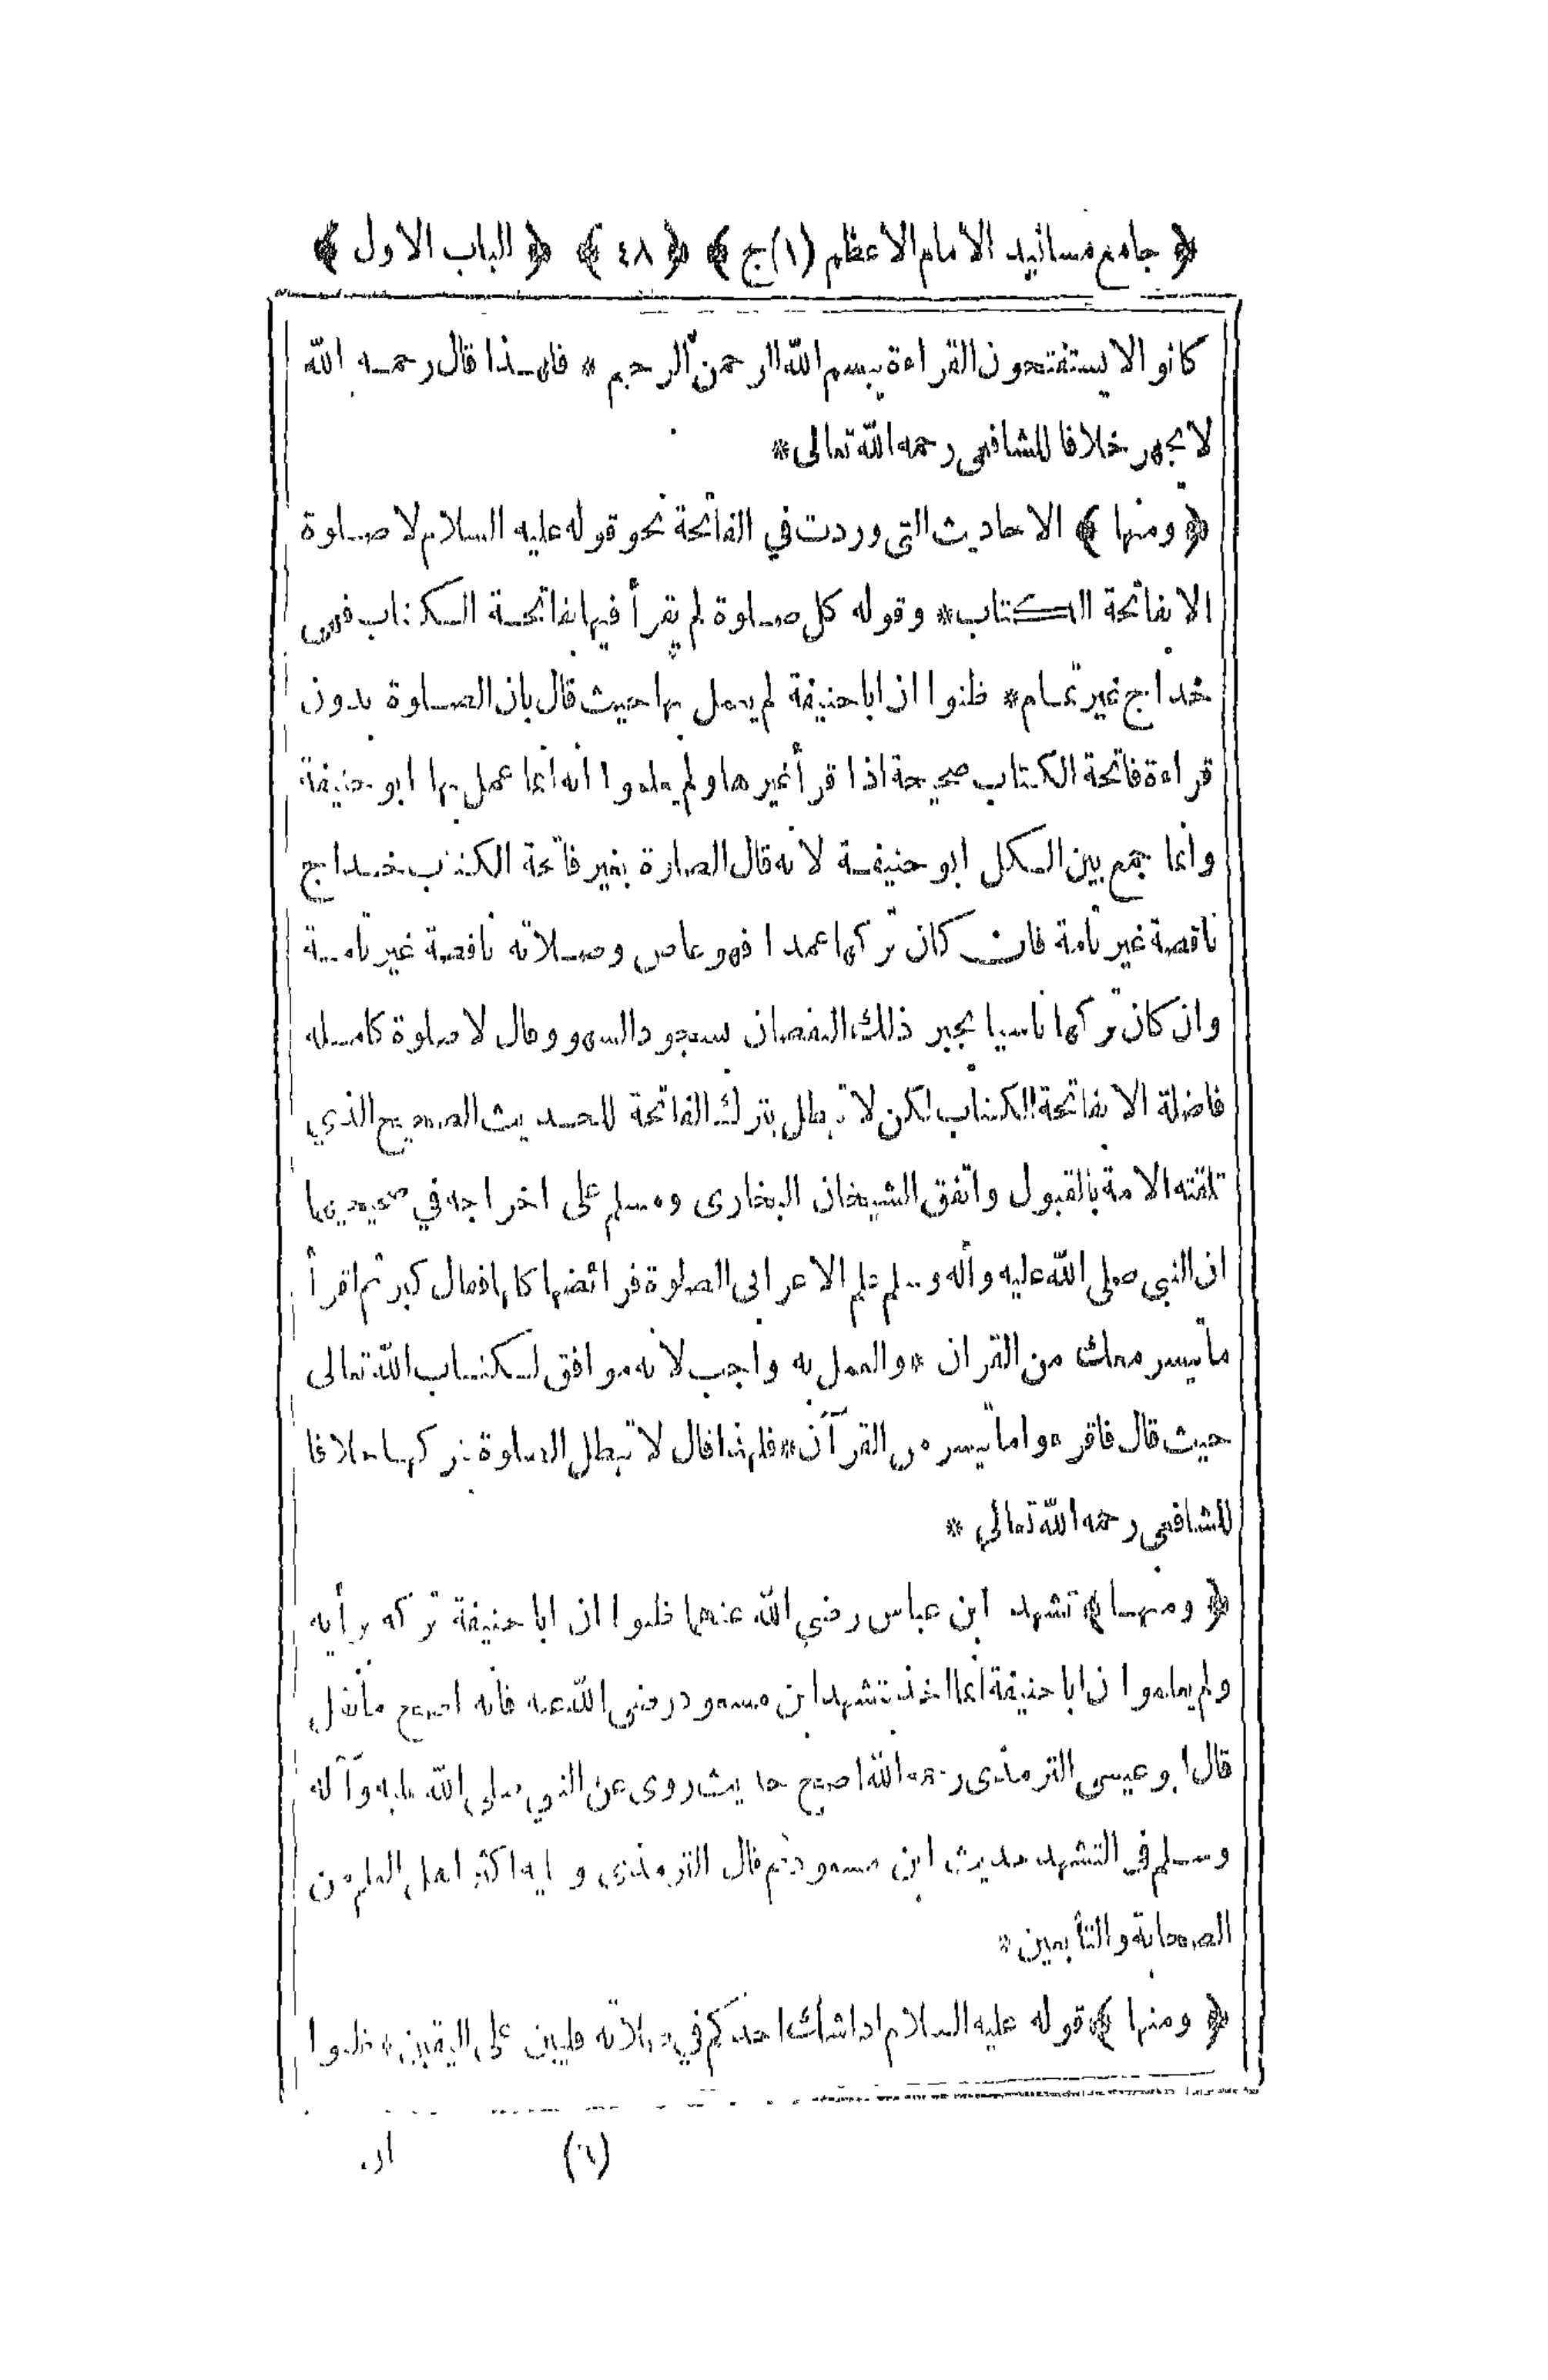 ﴿ جامع مسانيد الامام الاعظم (١)ج ﴾ ﴿ ٤٨ ﴾ ﴿ الباب الاول ﴾
كانوا لا يستفتحون القراءة ببسم الله الرحمن الرحيم * فلهذا قال رحمه الله
لا يجهر خلافا للشافعى رحمه الله تعالى *
﴿ ومنها ﴾ الاحاديث التى وردت في الفاتحة نحو قوله عليه السلام لا صلوة
الا بفاتحة الكتاب * وقوله كل صلوة لم يقرأ فيها بفاتحة الكتاب فهى
خداج غير تمام * ظنوا ان ابا حنيفة لم يعمل بها حيث قال بان الصلوة بدون
قراءة فاتحة الكتاب صحيحة اذا قرأ غيرها ولم يعلموا انه انما عمل بها ابو حنيفة
وانما جمع بين الكل ابو حنيفة لانه قال الصلوة بغير فاتحة الكتاب خداج
ناقصة غير تامة فان كان تركها عمدا فهو عاص وصلاته ناقصة غير تامة
وان كان تركها ناسيا يجبر ذلك النقصان بسجود السهو وقال لا صلوة كاملة
فاضلة الا بفاتحة الكتاب لكن لا تبطل بترك الفاتحة للحديث الصحيح الذي
تلقته الامة بالقبول واتفق الشيخان البخارى ومسلم على اخراجه في صحيحيهما
ان النبي صلى الله عليه وآله وسلم علم الاعرابى الصلوة فرائضها كلها فقال كبر ثم اقرأ
ما تيسر معك من القرآن * والعمل به واجب لانه موافق لكتاب الله تعالى
حيث قال فاقرءوا ما تيسر من القرآن * فلهذا قال لا تبطل الصلوة بتركها خلافا
للشافعى رحمه الله تعالى *
﴿ ومنها ﴾ تشهد ابن عباس رضي الله عنهما ظنوا ان ابا حنيفة تركه برأيه
ولم يعلموا ان ابا حنيفة انما اخذ بتشهد ابن مسعود رضى الله عنه فانه اصح ما نقل
قال ابو عيسى الترمذى رحمه الله اصح حديث روى عن النبي صلى الله عليه وآله
وسلم في التشهد حديث ابن مسعود ثم قال الترمذى وعليه اكثر اهل العلم من
الصحابة والتابعين *
﴿ ومنها ﴾ قوله عليه السلام اذا شك احدكم في صلاته فليبن على اليقين * ظنوا
(٦) ان